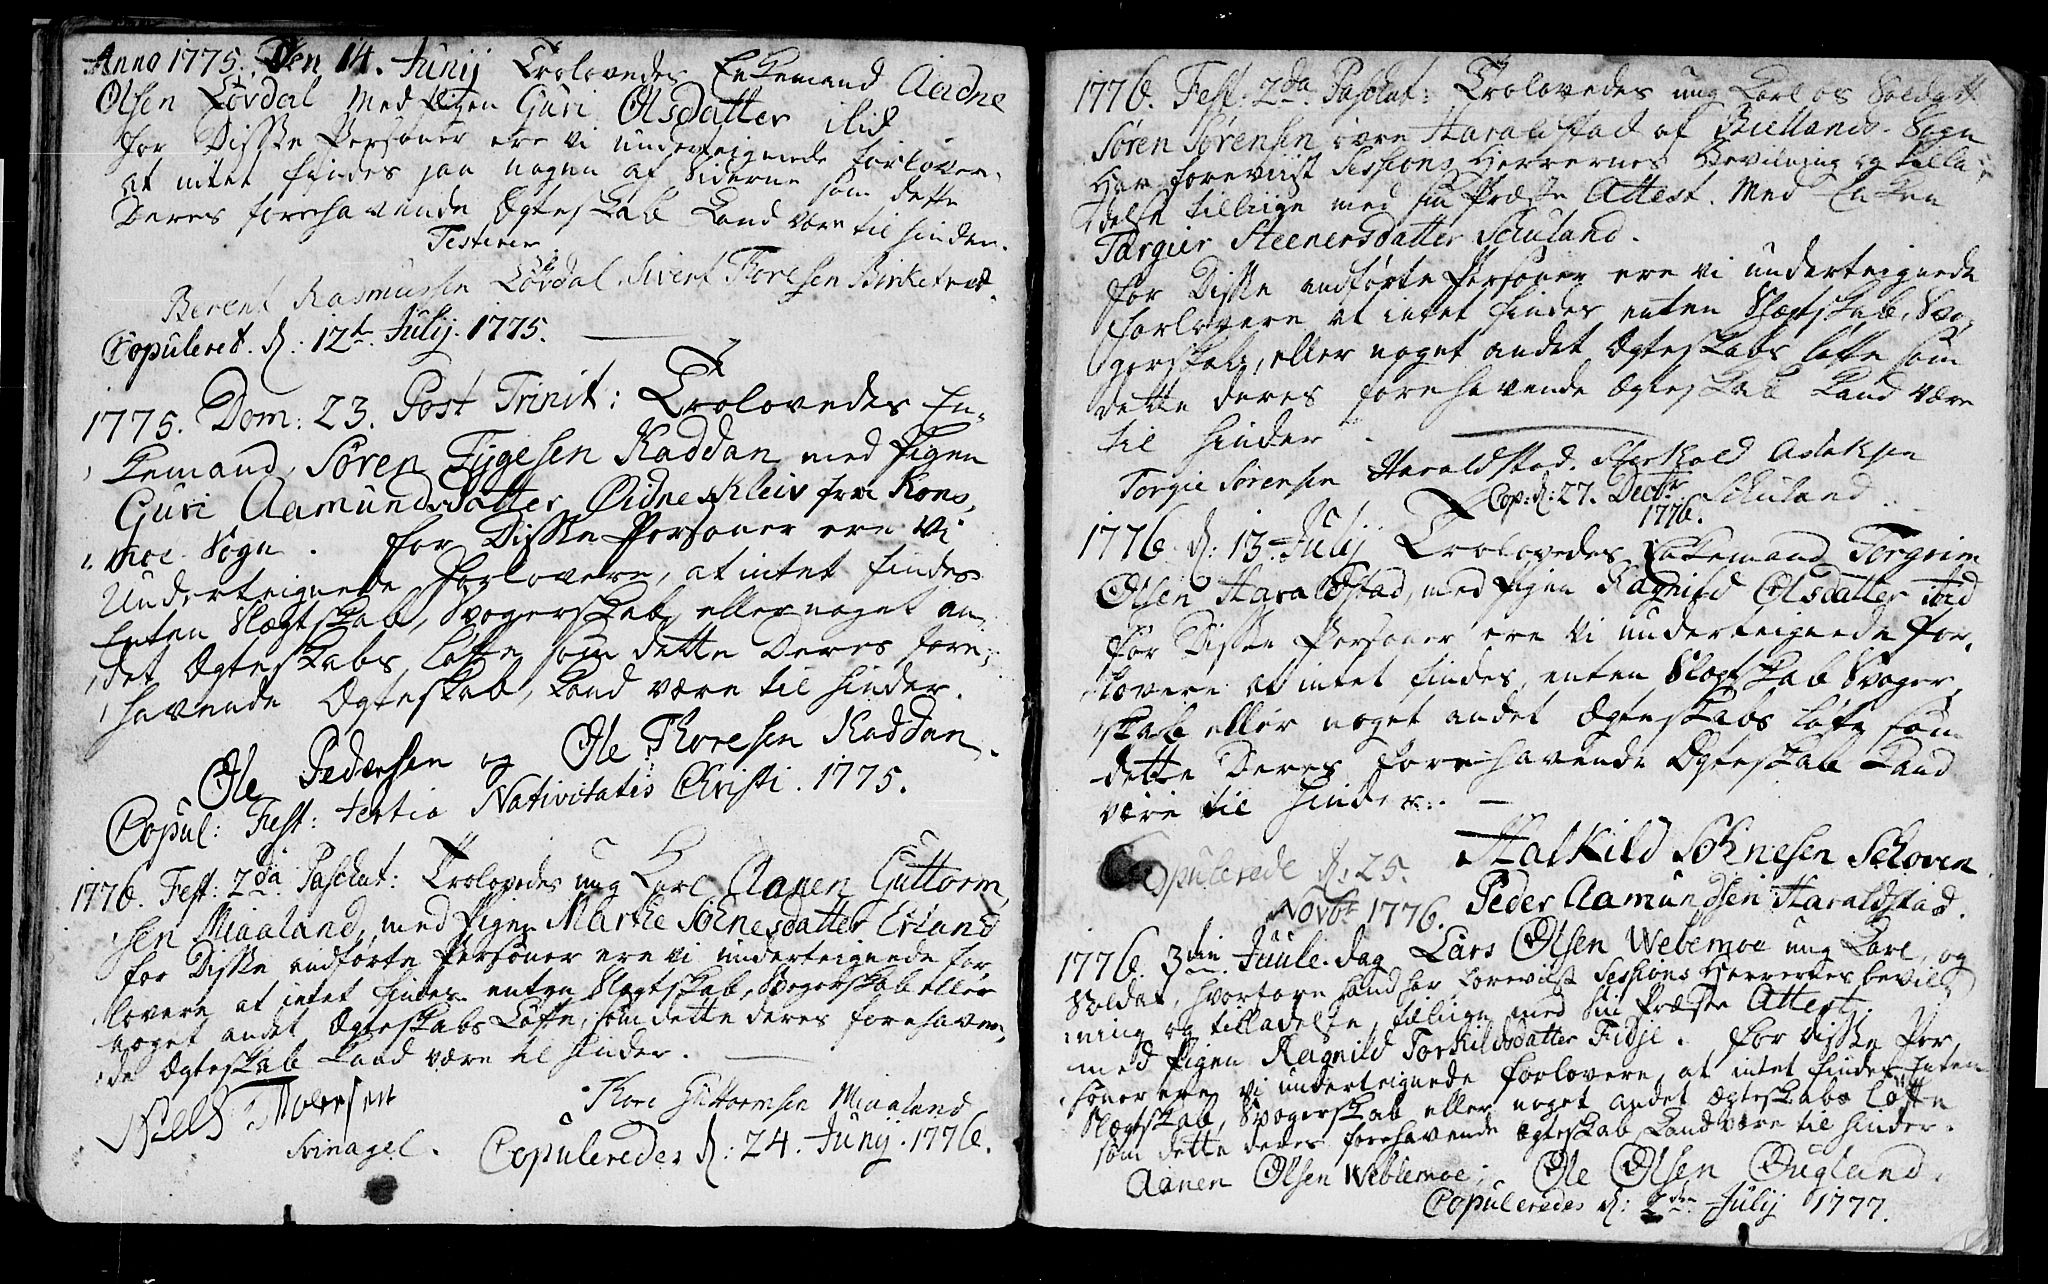 Anno 1775. Den 14. Junij Trolovedes Enkemand Aadne
Olsen Løvdal med Pigen Guri Olsdatter ibid.
For Disse Personer ere vi underteignede Forlover,
at intet findes paa nogen af Siderne som dette
Deres forehavende Ægteskab kand være til hinder.
Testerer
Berent Rasmussen Løvdal. Sivert Thoresen Birketvet.
Copuleret. d: 12te Julij. 1775.
1775. Dom: 23. Post Trinit: Trolovedes En-
kemand, Søren Tygesen Kaddan med Pigen
Guri Aamundsdatter Øidneskleiv fra Kons-
moe Sogn. For Disse Personer ere Vi
Underteignede Forlovere, at intet findes
Enten Slægtskab, Svogerskab, eller noget an-
det Ægteskabs løfte som dette Deres fore-
havende Ægteskab, kand være til hinder.
Ole Pedersen og Ole Thoresen Kaddan.
Copul: Fest: tertia Nativitatis Christi. 1775.
1776. Fest: 2da Paschat: Trolovedes ung Karl Aanen Guttorm-
sen Miaaland, med Pigen Marthe SØenesdatter Erland
For Disse andførte Personer ere vi underteignede for-
lovere at intet findes enten Slægtskab, Svogerskab eller
noget andet Ægteskabs Løfte, som dette deres forehaven-
de Ægteskab kand være til hinder.
Thore Guttormsen Miaaland
Niels
Svinagel. Copuleredes d: 24. Junij. 1776.
1776. Fest: 2da Paschat: Trolovedes ung Karl og Soldat
Søren Sørensen Øvre Haraldstad af Biellands-Sogn
Har foreviist Sessions Herrernes Bevilning og tilla-
delse tillige med sin Præstes Attest. Med Enken
Targier Steenersdatter Schuland.
For Disse andførte Personer ere vi underteignede
Forlovere at intet findes enten Slægtskab, Svo-
gerskab, eller noget andet Ægteskabs løfte som
dette deres forehavende Ægteskab kand være
til hinder.
Torgie Sørensen Haraldstad. Aslaksen
Schuland
Cop: d: 27. Decbr
1776.
1776. d: 13. Julij Trolovedes Enkemand Torgrim
Olsen Haraldstad, med Pigen Ragnild Olsdatter ibid
For Disse Personer ere Vi underteignede For-
lovere at intet findes, enten Slægtskab Svoger-
skab eller noget andet Ægteskabs løfte som
dette Deres forehavende Ægteskab kand
være til hinder.
SØenesen Schoven
Copulerede d: 25.
Novbr 1776. Peder Aamundsen Haraldstad.
1776. 3die Juule-dag Lars Olsen Weblemoe ung Karl, og
Soldat, hvorfore hand har foreviist Sessions Herrernes bevil-
ning og tilladelse, tillige med sin Præstes Attest.
med Pigen Ragnild Torkildsdatter Fidje. For Disse Per-
soner ere vi underteignede forlovere, at intet findes Enten
Slægtskab, Svogerskab eller noget andet Ægteskabs løfte
som dette deres forehavende Ægteskab kand være til hinder.
Aanen Olsen Weblemoe; Ole Olsen Øugland.
Copuleredes d: 2den Julij 1777.